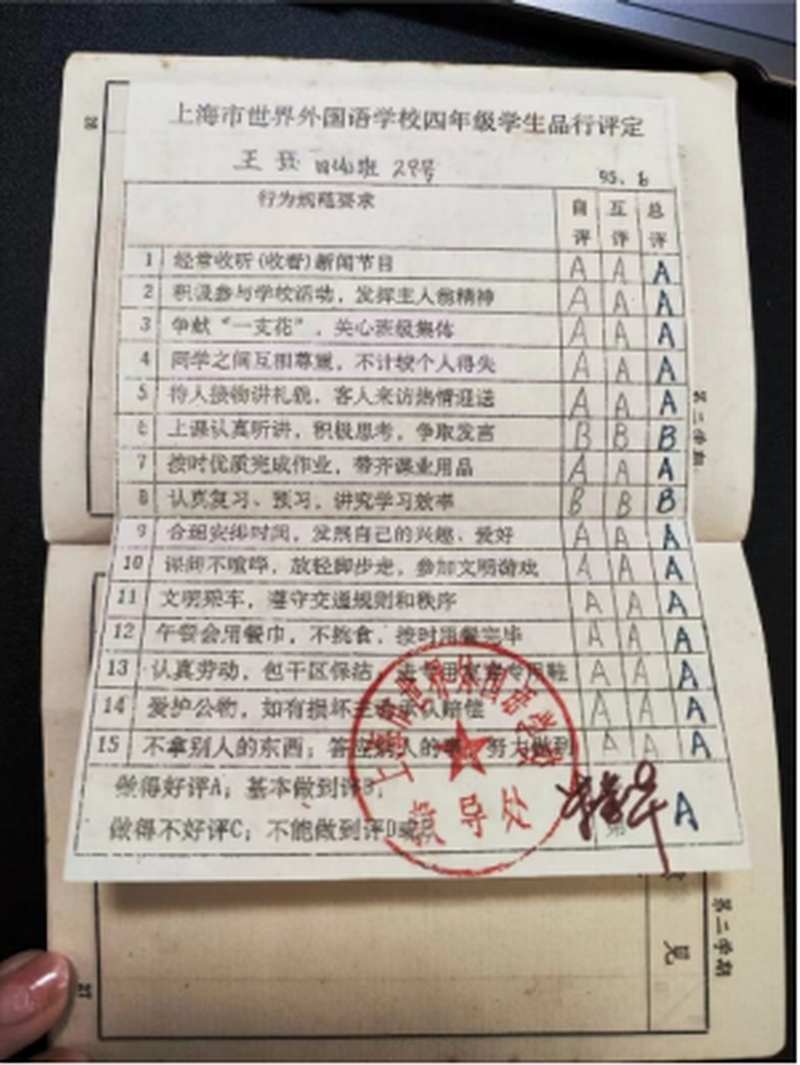 上海市世界外国语学校四年级学生品行评定
王 四(4)班 29号 95.6
行为规范要求 自评 互评 总评
1 经常收听(收看)新闻节目 A A A
2 积极参与学校活动，发挥主人翁精神 A A A
3 争献“一支花”，关心班级集体 A A A
4 同学之间互相尊重，不计较个人得失 A A A
5 待人接物讲礼貌，客人来访热情迎送 A A A
6 上课认真听讲，积极思考，争取发言 B B B
7 按时优质完成作业，带齐课业用品 A A A
8 认真复习、预习，讲究学习效率 B B B
9 合理安排时间，发展自己的兴趣、爱好 A A A
10 课间不喧哗，放轻脚步走，参加文明游戏 A A A
11 文明乘车，遵守交通规则和秩序 A A A
12 午餐会用餐巾，不挑食，按时用餐完毕 A A A
13 认真劳动，包干区保洁，进专用室穿专用鞋 A A A
14 爱护公物，如有损坏主动承认赔偿 A A A
15 不拿别人的东西；答应别人的事，努力做到 A A A
做得好评A；基本做到评B；
做得不好评C；不能做到评D A
上海市世界外国语学校
教导处
26
第二学期
第二学期
见
27